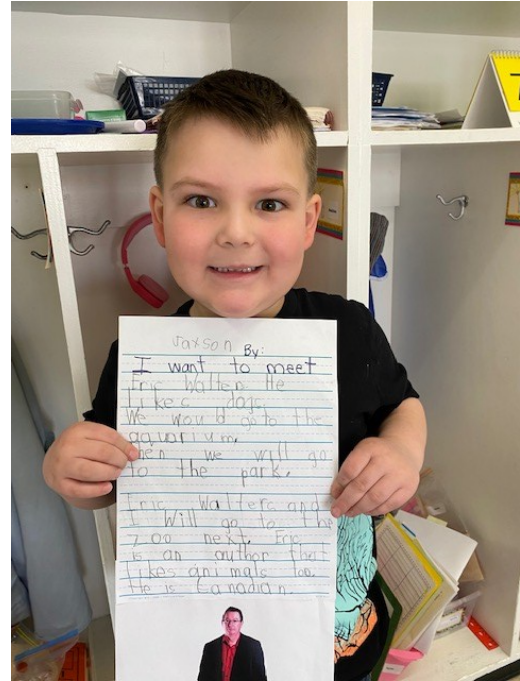 Jaxson By:
I want to meet
Eric Walters He
likes dogs.
We would go to the
aquarium.
Then we will go
to the park.
Eric Walters and
I will go to the
zoo next. Eric
is an author that
likes animals too.
He is Canadian.